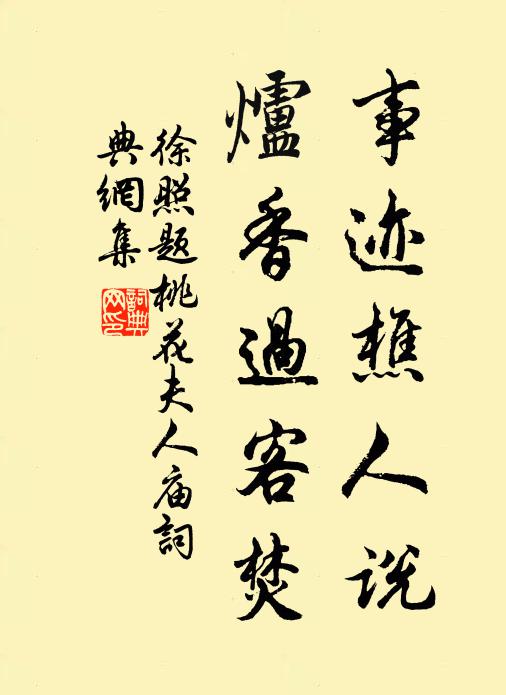 事迹樵人说
爐香過客焚
徐照题桃花夫人庙詞
典網集
詞典
网印